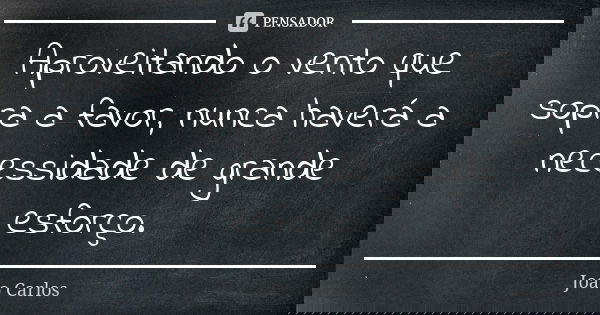 PENSADOR
Aproveitando o vento que
sopra a favor, nunca haverá a
necessidade de grande
esforço.
João Carlos